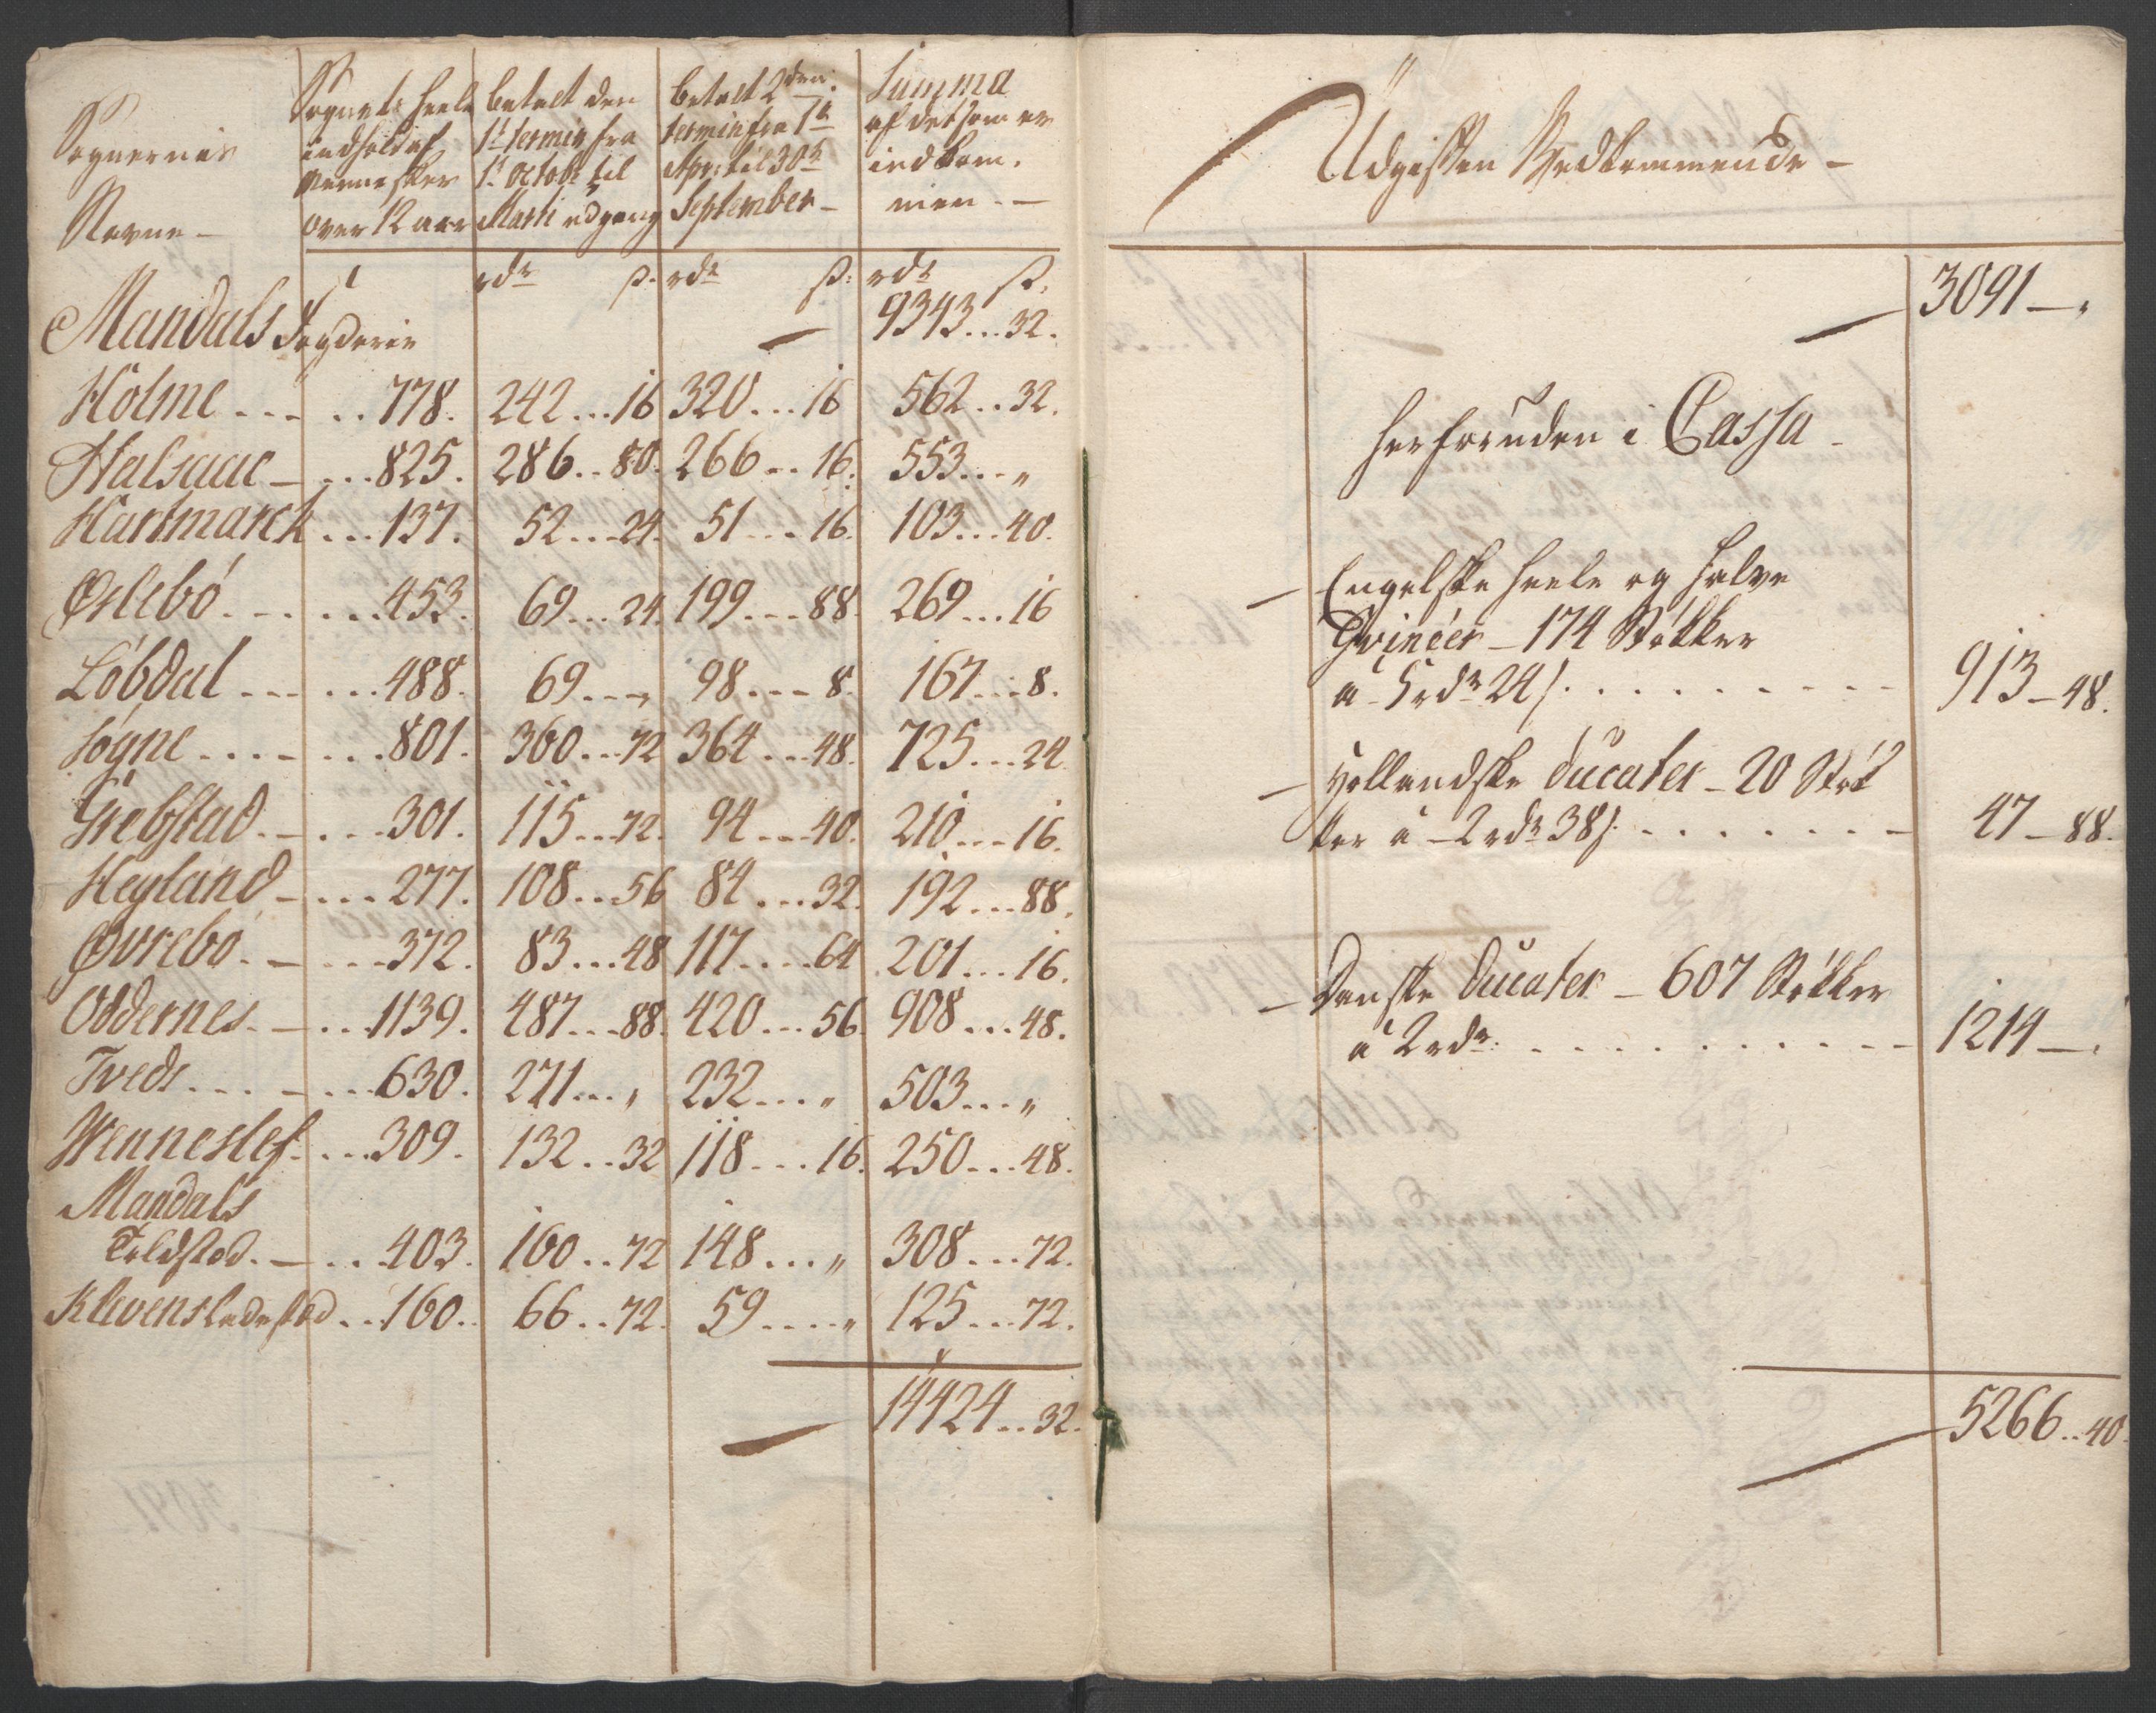 Sognernis
Navne -
Sognets heele
indhold af
Mennesker
over 12 aar
betalt den
1te termin fra
1te Octobr til
Marti udgang
Betalt 2den
termin fra 1te
Apr: til 30te
September -
Summa
af det som er
indkom,
men. -
rdr ß. rdr ß: rdr ß.
Mandals Fogderie - 9343...32.
Holme ... 778. 242...16 320...16 562..32.
Halsaae - ...825. 286..80. 266..16. 553...„
Hartmarck ...137. 52...24. 51...16. 103...40.
Øslebó ... 453. 69...24. 199...88. 269...16
Lóbdal ... 488. 69...„ 98...8. 167...8.
Sógne ... 801. 360...72 364...48. 725...24.
Grebstad. - ...301. 115...72. 94...40. 210...16.
Heyland - ...277. 108...56 84...32. 192...88.
Øvrebó. - ...372. 83...48 117...64 201...16.
Oddernes. - ...1139. 487...88. 420...56. 908...48.
Tveds ... 630. 271...„ 232...„ 503...„
Wenneslef. ...309. 132..32 118...16. 250...48.
Mandals
Toldsted. - ...403. 160..72 148...„ 308...72.
Klevens Ladested ..160.. 66..72. 59....„ 125...72.
14424..32.
Udgiften Vedkommende -
3091 - „
herforuden i Cassa -
- Engelske heele og halve
Gvinéer - 174 Stÿkker
a - 5 rdr 24 ß. ......... 913 - 48.
- Hollandske Ducater - 20 Stÿk
ker a - 2 rdr 38 ß. ....... 47 - 88.
- Danske Ducater - 607 Stÿkker
a 2 rdr. .......... 1214 - „
5266..40.